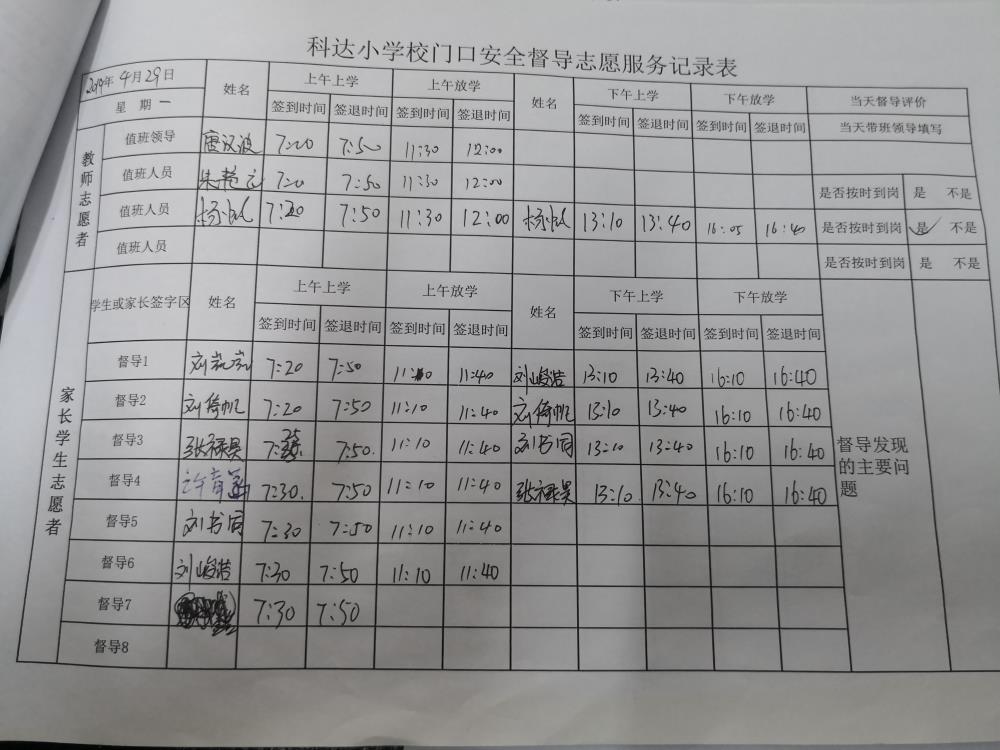 科达小学校门口安全督导志愿服务记录表
年4月29日 姓名 上午上学 上午放学 姓名 下午上学 下午放学 当天督导评价
星 期 一 签到时间 签退时间 签到时间 签退时间 签到时间 签退时间 签到时间 签退时间 当天带班领导填写
教师志愿者
值班领导 唐汉波 7:20 7:50 11:30 12:00
值班人员 朱艳 7:20 7:50 11:30 12:00 是否按时到岗 是 不是
值班人员 杨 7:20 7:50 11:30 12:00 杨 13:10 13:40 16:05 16:40 是否按时到岗 是 ✓ 不是
值班人员 是否按时到岗 是 不是
家长学生志愿者
学生或家长签字区 姓名 上午上学 上午放学 姓名 下午上学 下午放学
签到时间 签退时间 签到时间 签退时间 签到时间 签退时间 签到时间 签退时间
督导1 刘 7:20 7:50 11:40 刘峻洁 13:10 13:40 16:10 16:40
督导2 刘倚帆 7:20 7:50 11:10 11:40 刘倚帆 13:10 13:40 16:10 16:40
督导3 张禄昊 7:25 7:50. 11:10 11:40 刘书同 13:10 13:40 16:10 16:40
督导4 许青 7:30. 7:50 11:10 11:40 张禄昊 13:10. 13:40 16:10 16:40
督导5 刘书同 7:30 7:50 11:10 11:40
督导6 刘峻洁 7:30 7:50 11:10 11:40
督导7 7:30 7:50
督导8
督导发现
的主要问
题